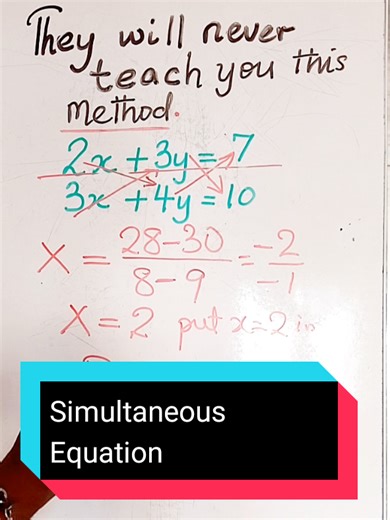 They will never
teach you this
Method.
2x + 3y = 7
3x + 4y = 10
X = 28-30 / 8-9 = -2 / -1
X = 2 put x=2 in
Simultaneous
Equation